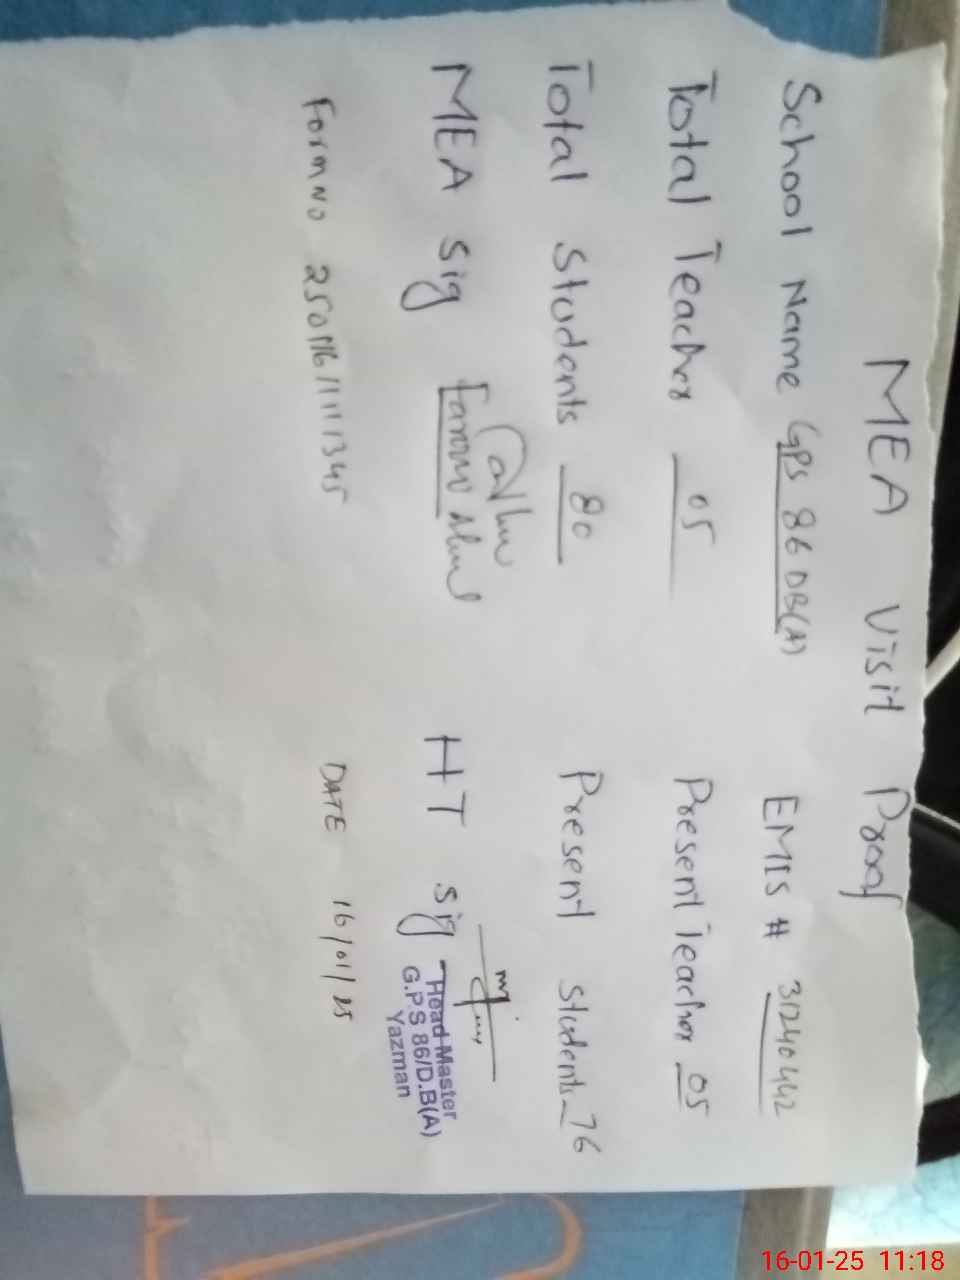 MEA Visit Proof
School Name GPS 86 DB(A) EMIS # 31240442
Total Teacher 05 Present Teacher 05
Total Students 80 Present Students 76
MEA Sig HT Sig
Head Master
G.P.S 86/D.B(A)
Yazman
Form No DATE 16/01/25
16-01-25 11:18